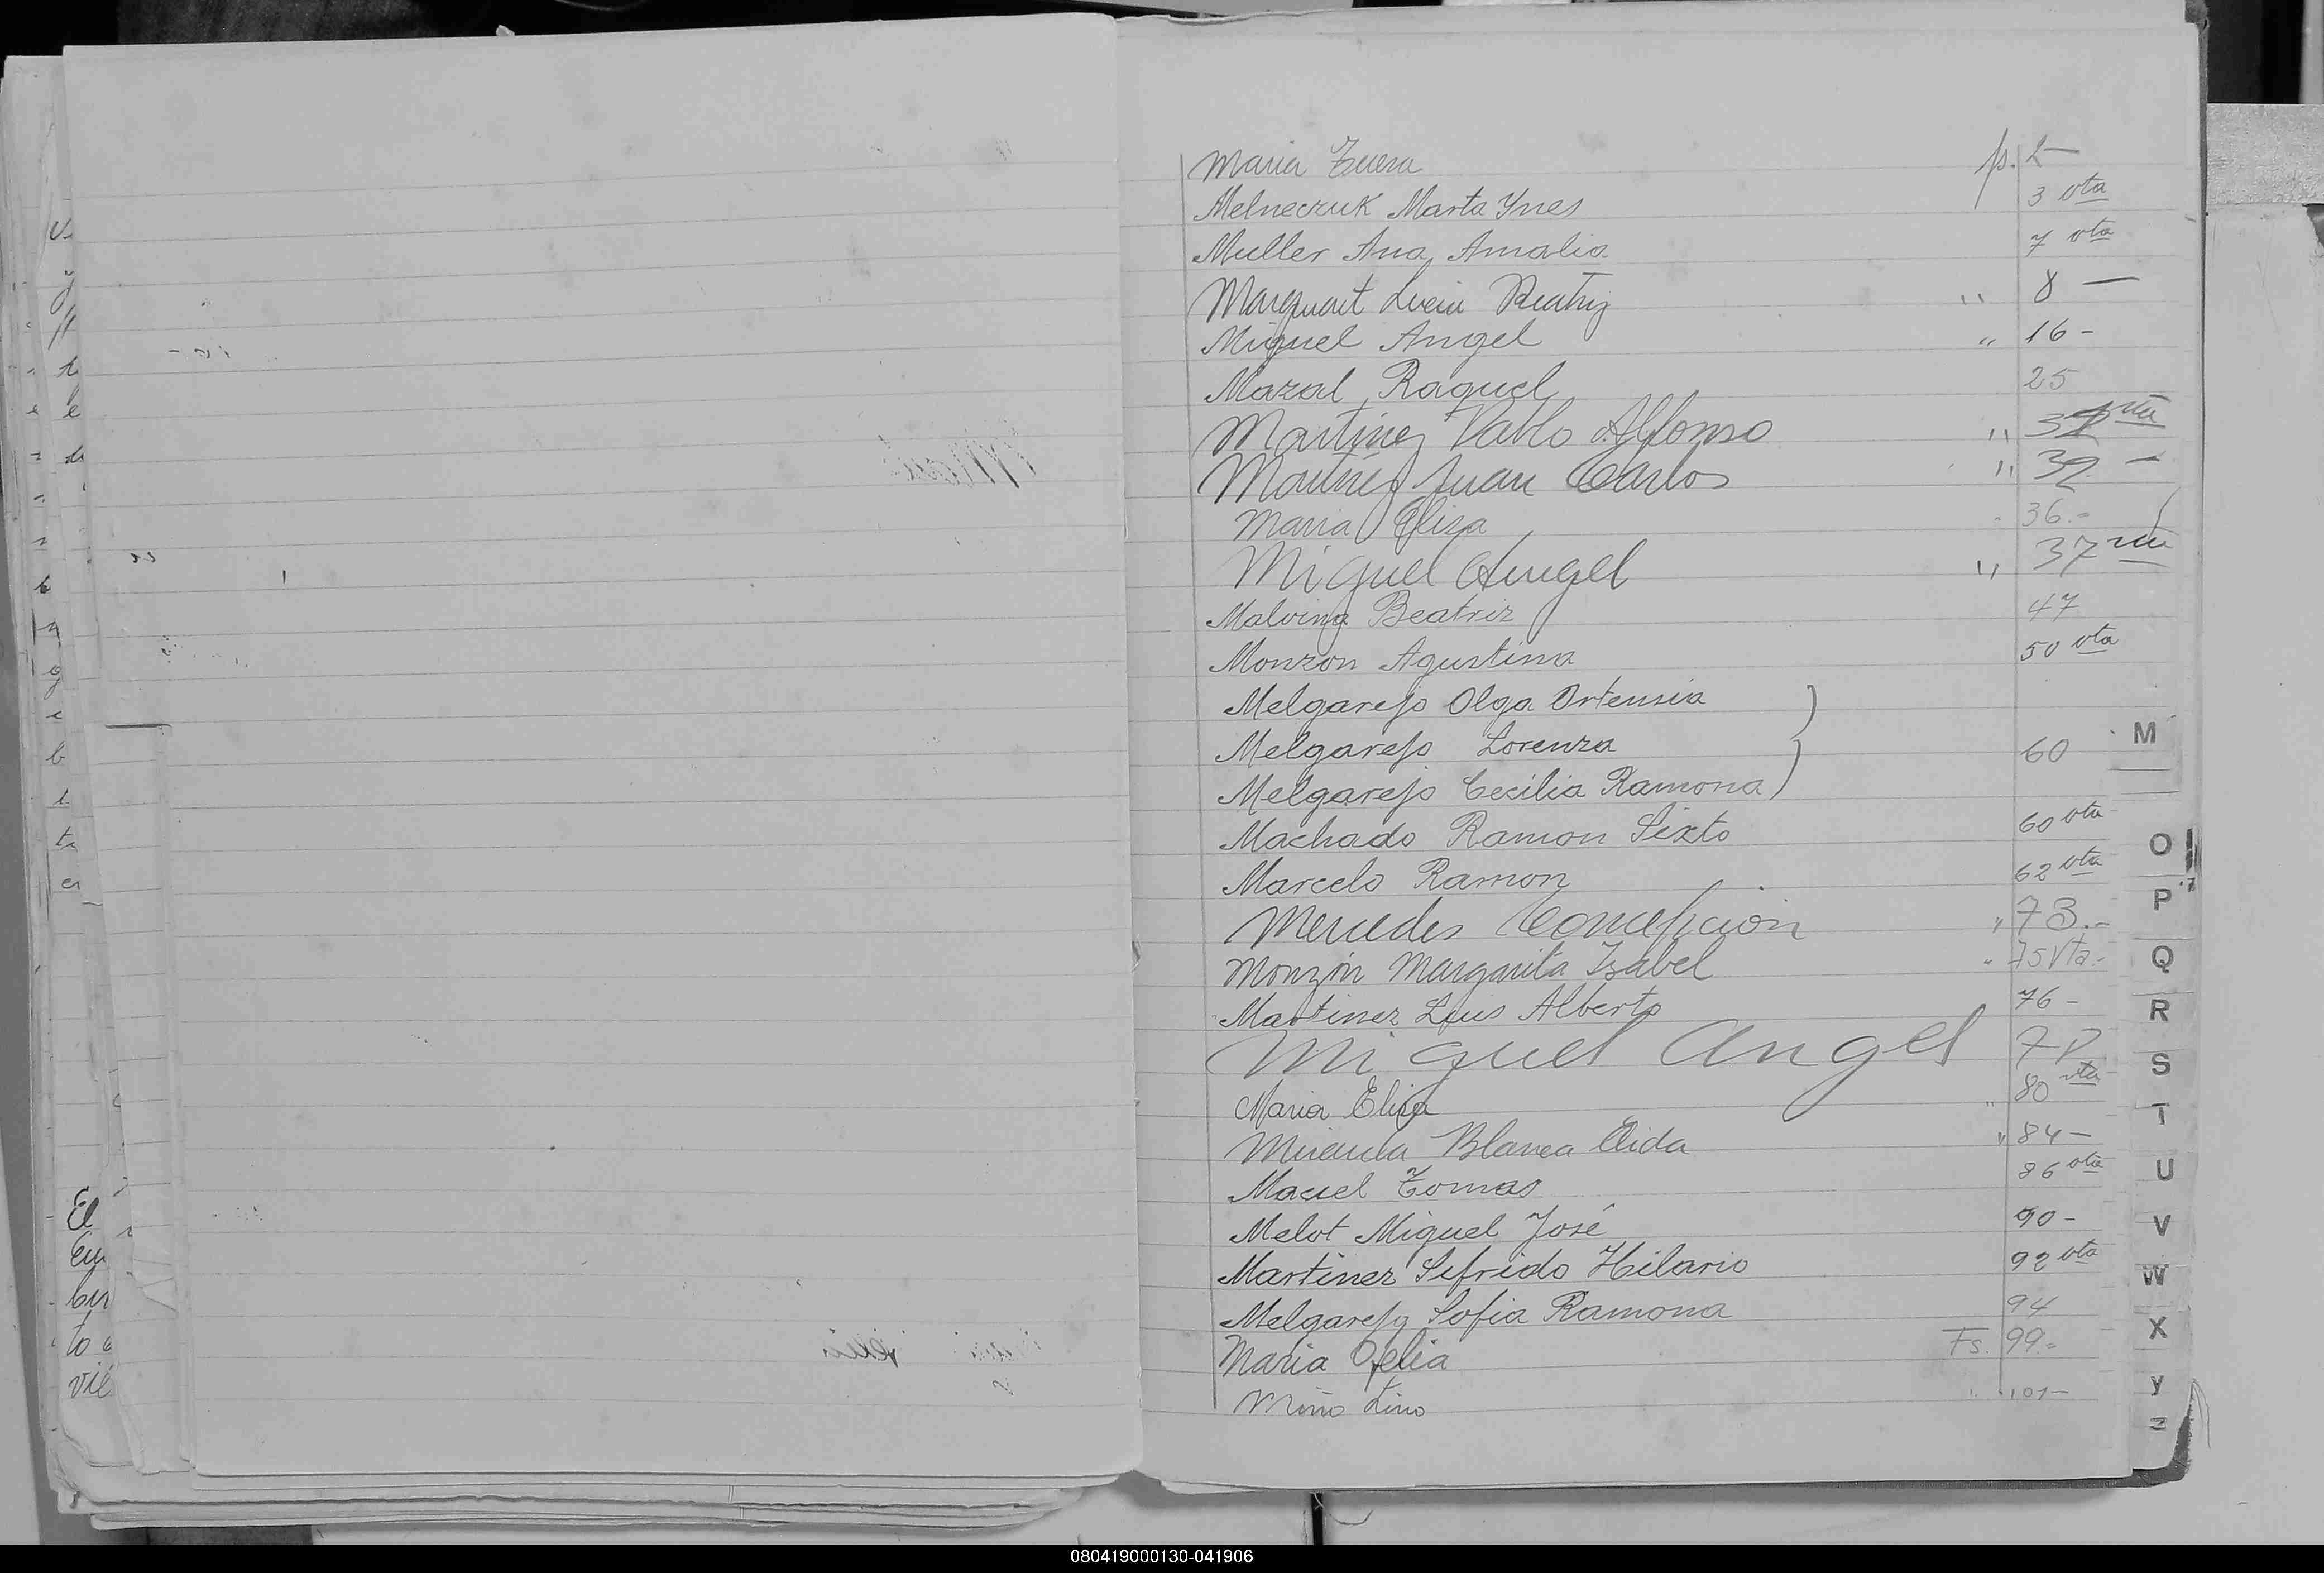 Maria fs. 2-
Melneczuk Marta Ynes 3 vta
Muller Ana Amalia 7 vta
Marquart Lucia Beatriz " 8 -
Miguel Angel " 16 -
Mazal Raquel 25
Martinez Pablo Alfonso " vta
Martinez Juan Carlos " 32 -
Maria Elisa 36.-
Miguel Angel " 37 vta
Malvina Beatriz 47
Monzon Agustina 50 vta
Melgarejo Olga Ortensia
Melgarejo Lorenza 60
Melgarejo Cecilia Ramona
Machado Ramon Sixto 60 vta
Marcelo Ramon 62 vta
Mercedes Concepcion " 73.-
Monzón Margarita Isabel " 75 Vta.-
Martinez Luis Alberto 76 -
Miguel Angel
Maria Elisa " 80 vta
Miranda Blanca Elida " 84 -
Maciel Tomas 86 vta
Melot Miguel José 90 -
Martinez Sefrido Hilario 92 vta
Melgarejo Sofia Ramona 94
Maria Ofelia Fs. 99.-
Miño Lino " 101-
M
O
P
Q
R
S
T
U
V
W
X
Y
Z
El
to
080419000130-041906